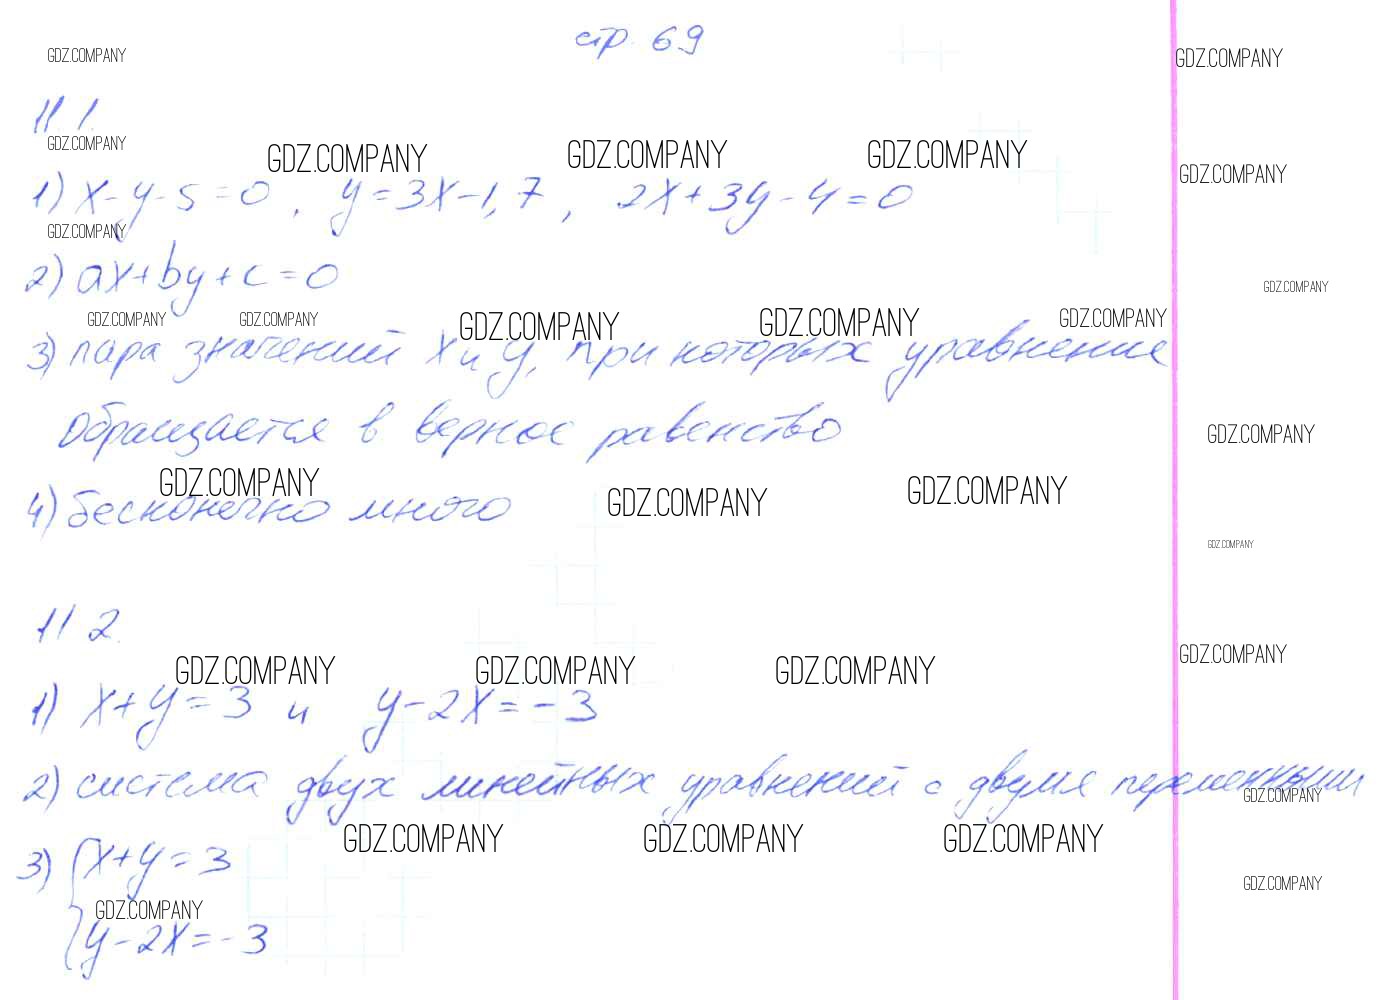 стр. 69
GDZ.COMPANY GDZ.COMPANY
11.1.
GDZ.COMPANY GDZ.COMPANY GDZ.COMPANY GDZ.COMPANY GDZ.COMPANY
1) x-y-5=0, y=3x-1,7, 2x+3y-4=0
GDZ.COMPANY
2) ax+by+c=0
GDZ.COMPANY
GDZ.COMPANY GDZ.COMPANY GDZ.COMPANY GDZ.COMPANY GDZ.COMPANY
3) пара значений x и y, при которых уравнение
обращается в верное равенство
GDZ.COMPANY
GDZ.COMPANY GDZ.COMPANY GDZ.COMPANY
4) бесконечно много
GDZ.COMPANY
11.2.
GDZ.COMPANY GDZ.COMPANY GDZ.COMPANY GDZ.COMPANY
1) x+y=3 и y-2x=-3
2) система двух линейных уравнений с двумя переменными
GDZ.COMPANY
GDZ.COMPANY GDZ.COMPANY GDZ.COMPANY
3) { x+y=3
GDZ.COMPANY GDZ.COMPANY
y-2x=-3